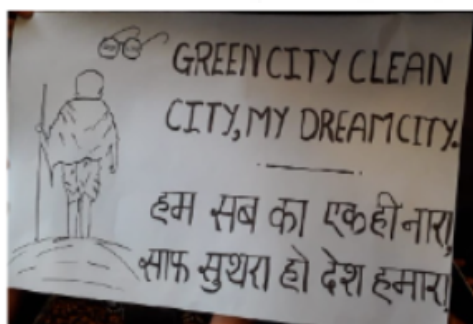 GREEN CITY CLEAN
CITY, MY DREAM CITY.
हम सब का एक ही नारा,
साफ सुथरा हो देश हमारा